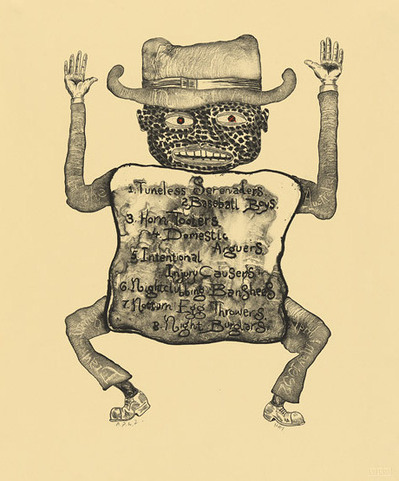 1. Tuneless Serenaders.
2. Baseball Boys.
3. Horn Tooters
4. Domestic
Arguers.
5. Intentional
Injury Causers.
6. Nightclubbing Banshees
7. Rotten Egg Throwers.
8. Night Burglars.